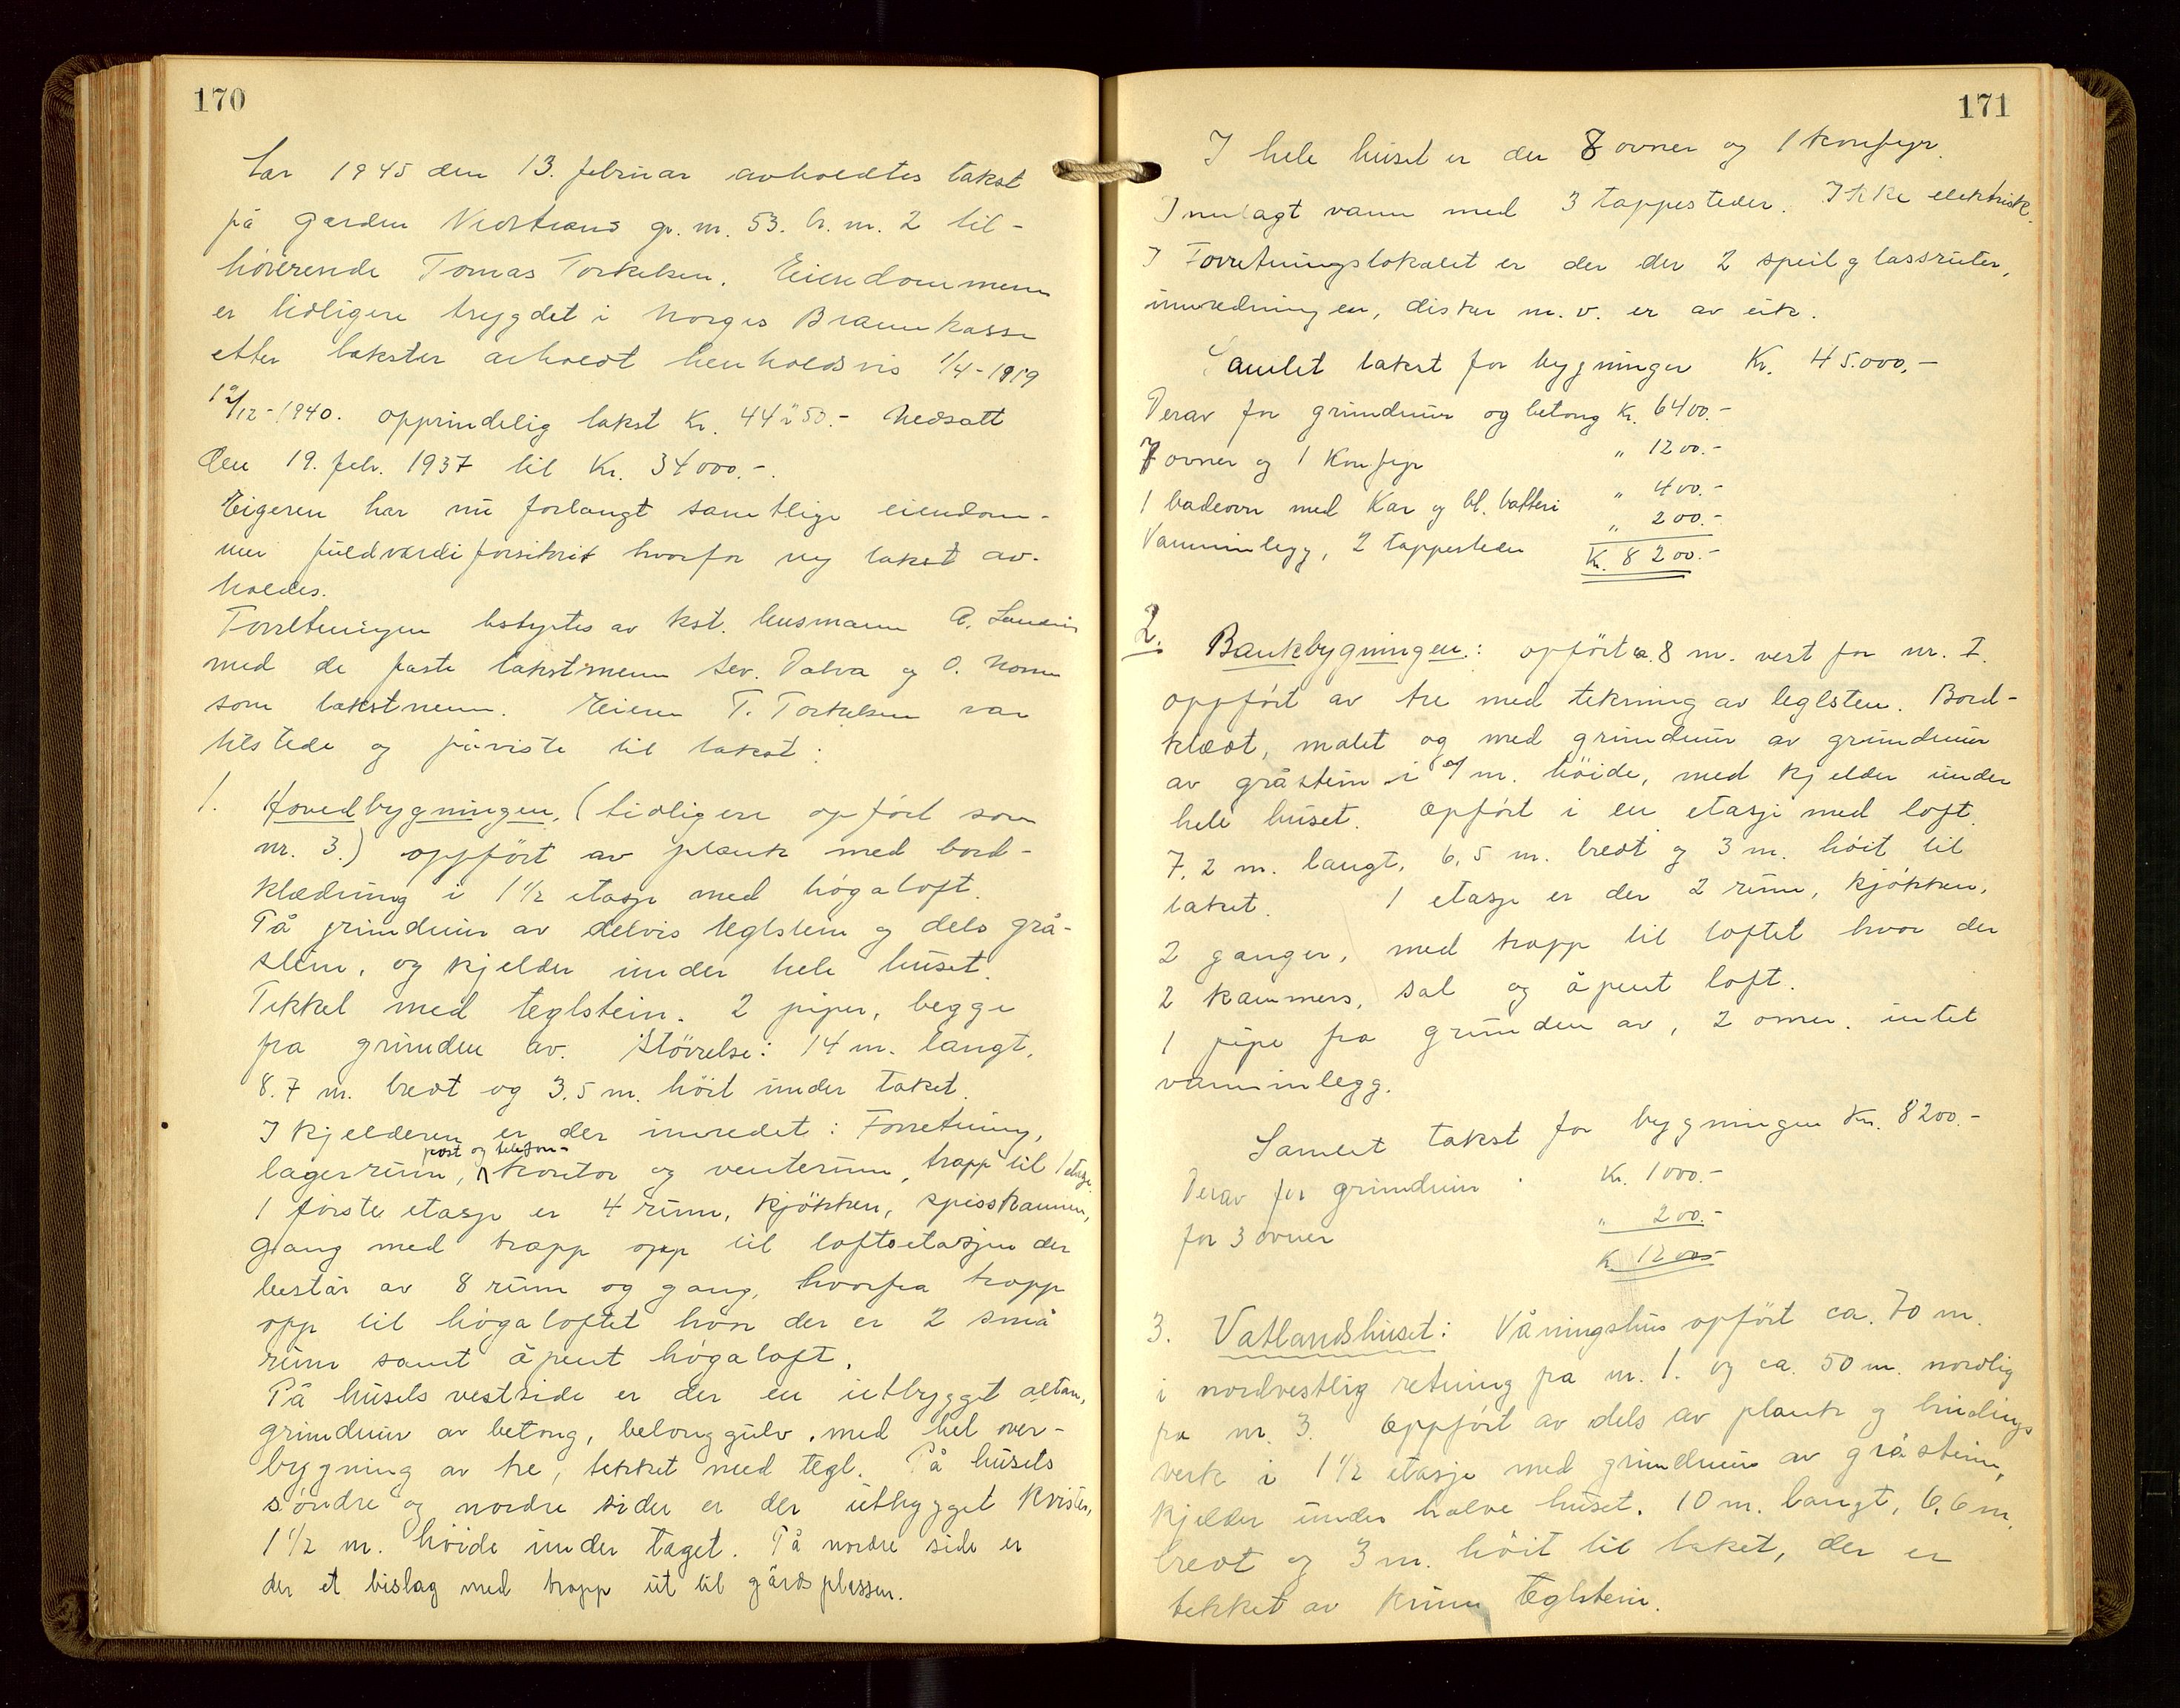 170
År 1945 den 13. februar avholdtes takst
på garden Nedstrand gr. nr. 53. br. nr. 2 til-
hörerende Tomas Torkelsen. Eiendommen
er tidligere trygdet i Norges Brannkasse
etter takster avholdt henholdsvis 1/4-1919
/12-1940. opprindelig takst Kr. 44 50.- Nedsatt
den 19. feb. 1937 til Kr. 34000.-.
Eigeren har nu forlangt samtlige eiendom-
mer fuldværdiforsikrit hvorfor ny takst av-
holdes.
Forretningen bestyrtes av kst. lensmann A.
med de faste takstmenn Sev. Dalva og O.
som takstmenn. Eieren T. Torkelsen var
tilstede og påviste til takst:
1. Hovedbygningen, (tidligere opfört som
nr. 3.) oppfört av plank med bord-
klædning i 1 1/2 etasje med högaloft.
På grundmur av delvis teglstein og dels grå-
stein, og kjelder under hele huset.
Tekket med teglstein. 2 piper, begge
fra grunden av. Störrelse: 14 m. langt,
8.7 m. bredt og 3,5 m. höit under taket.
I kjelderen er der inredet: Forretning,
post og telefon-
lagerrum, kontor og venterum, trapp til 1 etasje.
I förste etasje er 4 rum, kjökken, spisskammer,
gang med trapp opp til loftsetasjen der
består av 8 rum og gang, hvorfra trapp
opp til högaloftet hvor der er 2 små
rum samt åpent högaloft.
På husets vestside er der en utbygget altan,
grundmur av betong, betonggulv, med hel over-
bygning av tre, tekket med tegl. På husets
söndre og nordre sider er der utbygget kvister,
1 1/2 m. höide under taget. På nordre side er
der et bislag med trapp ut til gårdsplassen.
171
I hele huset er der 8 ovner og 1 komfyr.
Innlagt vann med 3 tappesteder. Ikke elektrisk.
I Forretningslokalet er der der 2 speilglassruter,
innredningen, disker m.v. er av eik.
Samlet takst for bygninger Kr. 45.000,-
Derav for grundmur og betong Kr. 6400.-
7 ovner og 1 Komfyr " 1200.-
1 badeovn med Kar og bl. batteri " 400.-
Vanninnlegg, 2 tappesteder " 200.-
Kr. 8200.-
2. Bankbygningen: opfört ca. 8 m. vest for nr. I.
oppfört av tre med tekning av teglsten. Bord-
klædt, malet og med grundmur av grundmur
av gråstein i m. höide, med kjelder under
hele huset. Opfört i en etasje med loft.
7,2 m. langt, 6,5 m. bredt og 3 m. höit til
taket. I etasje er der 2 rum, kjökken,
2 ganger, med trapp til loftet hvor der
2 kammers, sal og åpent loft.
1 pipe fra grunden av, 2 ovner. intet
vanninlegg.
Samlet takst for bygningen Kr. 8200.-
Derav for grundmur Kr. 1000.-
for 3 ovner " 200.-
Kr. 1200.-
3. Vatlandshuset: Våningshus opfört ca. 70 m.
i nordvestlig retning fra nr. 1. og ca. 50 m. nordlig
fra nr. 3. Oppfört av dels av plank og bindings
verk i 1 1/2 etasje med grundmur av gråstein,
kjelder under halve huset. 10 m. langt, 6,6 m.
bredt og 3 m. höit til taket, der er
tekket av krum teglstein.